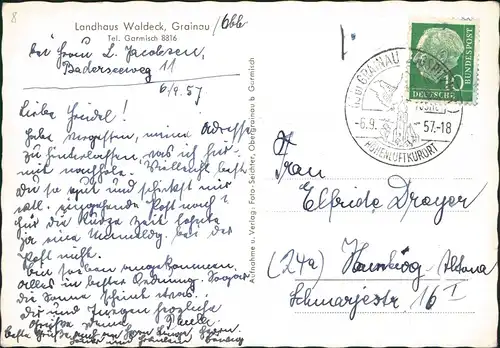 8
Landhaus Waldeck, Grainau /Obb.
Tel. Garmisch 8816
bei Frau L. Jacobsen,
Baderseeweg 11
6/9.57
Liebe Friedel!
Habe vergessen, meine Adresse
zu hinterlassen, was ich hier-
mit nachhole. Vielleicht bist
Du so gut und schickst mir
evtl. eingehende Post nach?
Für die kurze Zeit lohnte
ja eine Ummeldg. bei der
Post nicht.
Bin soeben angekommen.
Alles in bester Ordnung. Sogar
die Sonne scheint etwas.
Dich und Jürgen herzliche
Grüsse
beste Grüße auch an Herrn
und Fräulein
Aufnahme u. Verlag: Foto-Seichter, Obergrainau b Garmisch
GRAINAU
-6.9. 57.-18
HÖHENLUFTKURORT
10
DEUTSCHE BUNDESPOST
Frau
Elfride Drayer
(24a) Hamburg-Altona
Schmarjestr. 16 I